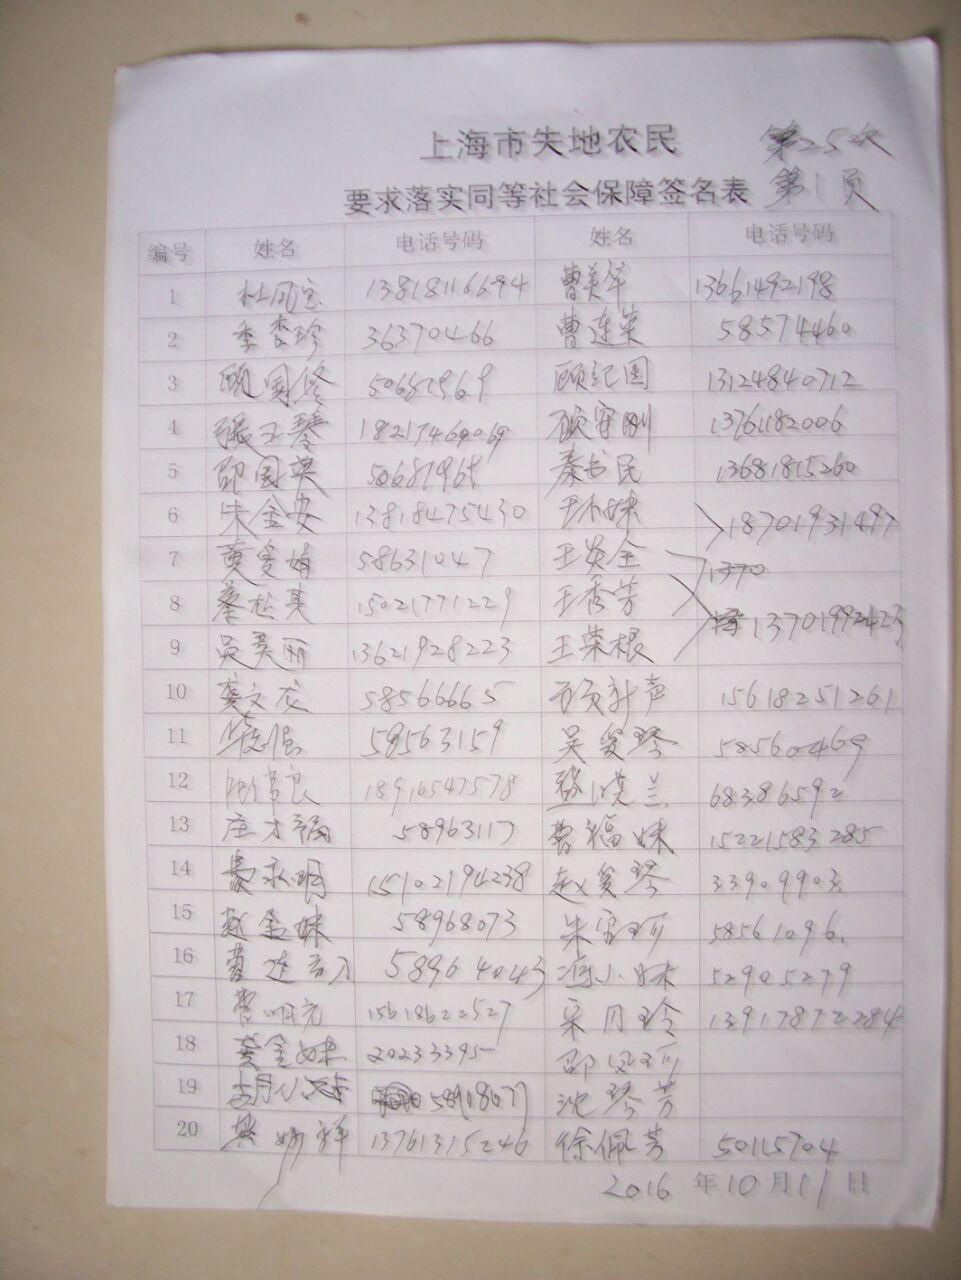 上海市失地农民 第25次
要求落实同等社会保障签名表 第1页
编号 姓名 电话号码 姓名 电话号码
1 杜凤宝 13818116694 曹美华 13661492198
2 季杏珍 36370466 曹连荣 58574460
3 顾国修 50681969 顾纪国 13124840712
4 张玉琴 18217469069 顾守刚 13761182006
5 邵国英 50681965 秦书民 13681815260
6 朱金安 13818475430 王小妹 18701931497
7 黄爱娟 58631047 王炎全 1370
8 蔡松其 15021771229 王秀芳 13701992423
9 吴美丽 13621928223 王荣根
10 龚文龙 58566665 15618251261
11 58563159 吴爱琴 58560469
12 18916547578 晓兰 68386592
13 庄才福 58963117 曹福妹 15221583285
14 永明 15102194238 赵爱琴 33909903
15 赵金妹 58968073 朱宝珍 58561096
16 曹连 58964043 小妹 52905279
17 曹明亮 15618622527 宋月玲 13917872284
18 黄金妹 20233395 邵凤珍
19 58918077 沈琴芳
20 妙祥 13761315246 徐佩芳 50115704
2016 年 10 月 11 日